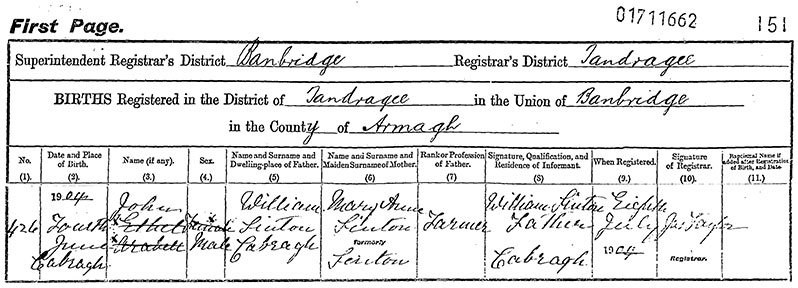 First Page.
01711662
151
Superintendent Registrar's District Banbridge Registrar's District Tandragee
BIRTHS Registered in the District of Tandragee in the Union of Banbridge
in the County of Armagh
No. Date and Place of Birth. Name (if any). Sex. Name and Surname and Dwelling-place of Father. Name and Surname and Maiden Surname of Mother. Rank or Profession of Father. Signature, Qualification, and Residence of Informant. When Registered. Signature of Registrar. Baptismal Name if added after Registration of Birth, and Date.
(1). (2). (3). (4). (5) (6) (7) (8) (9.) (10). (11.)
1904 John William Mary Anne William Sinton Eighth
426 Fourth Ethel Female Sinton Sinton Farmer Father July Jas Taylor
June Male Cabragh Formerly
Cabragh Sinton Cabragh 1904 Registrar.